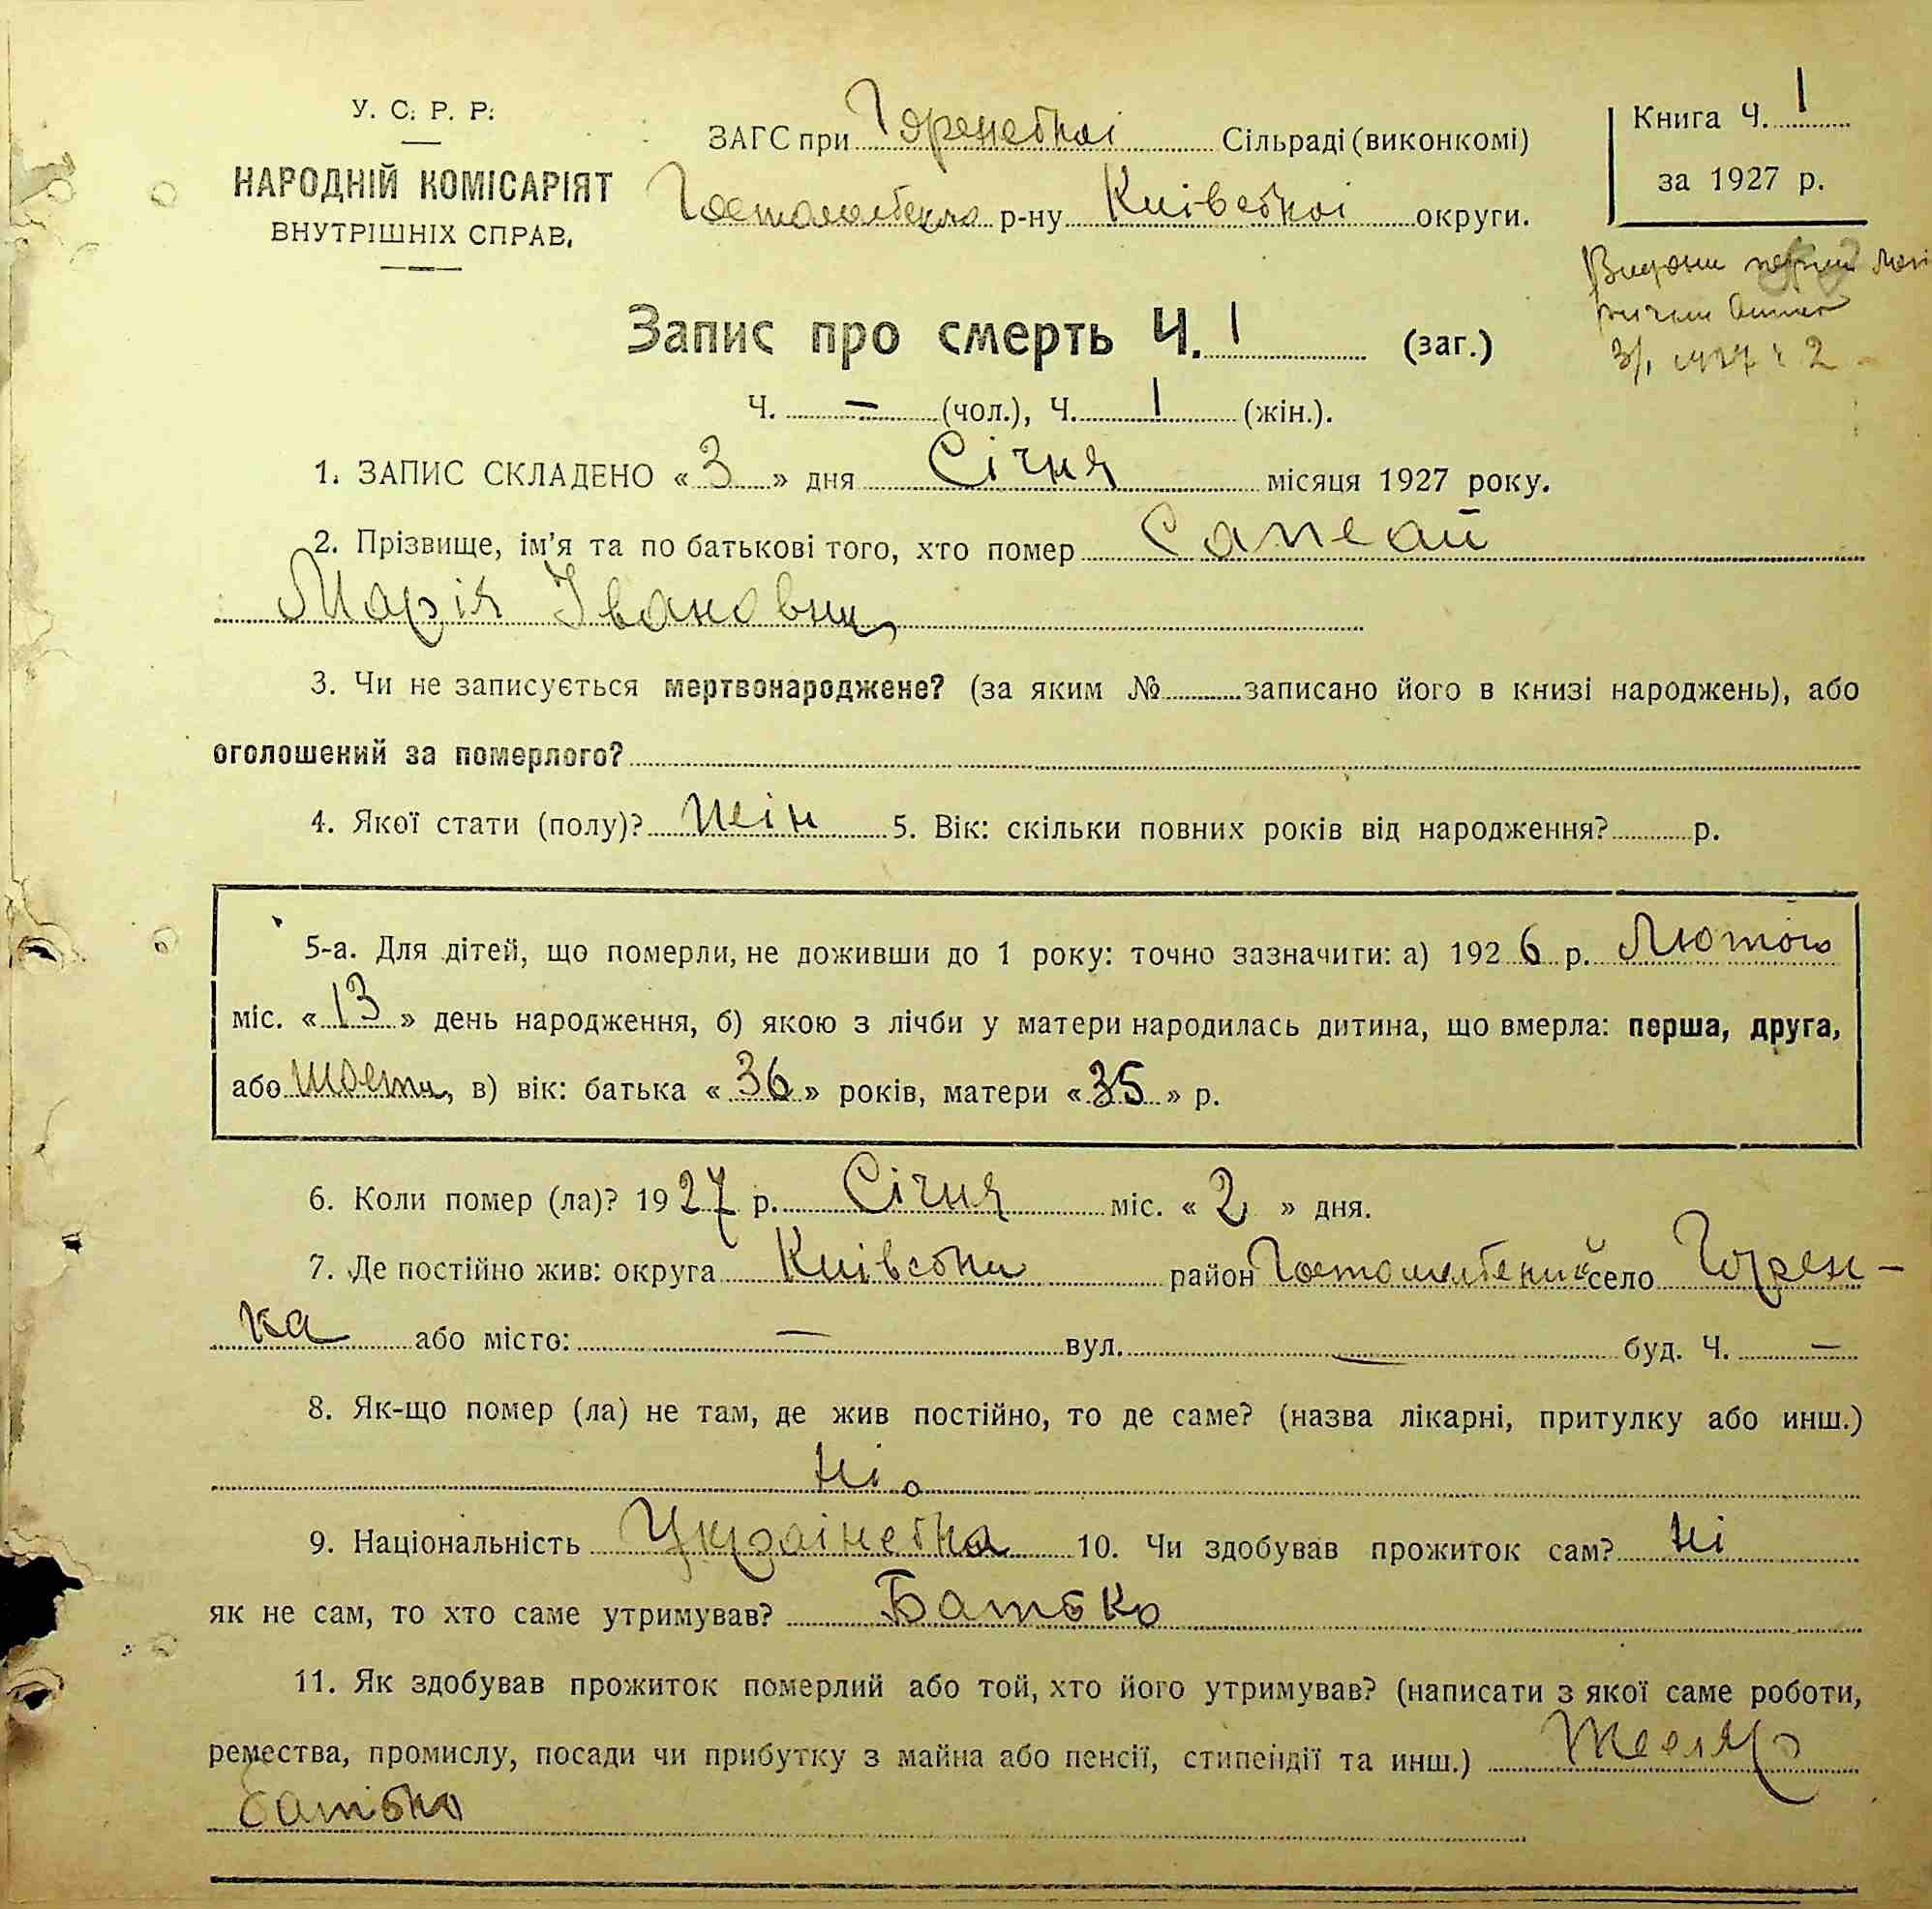 У. С. Р. Р.
НАРОДНІЙ КОМІСАРІЯТ
ВНУТРІШНІХ СПРАВ.
ЗАГС при Горенської Сільраді (виконкомі)
Гостомельського р-ну Київської округи.
Книга Ч. 1
за 1927 р.
Видани
3/I 1927 г 2
Запис про смерть Ч. 1 (заг.)
Ч. — (чол.), Ч. 1 (жін.).
1. ЗАПИС СКЛАДЕНО « 3 » дня Січня місяця 1927 року.
2. Прізвище, ім'я та по батькові того, хто помер
Марія Івановна
3. Чи не записується мертвонароджене? (за яким № записано його в книзі народжень), або
оголошений за померлого?
4. Якої стати (полу)? жін 5. Вік: скільки повних років від народження? р.
5-а. Для дітей, що померли, не доживши до 1 року: точно зазначити: а) 1926 р. Лютого
міс. « 13 » день народження, б) якою з лічби у матери народилась дитина, що вмерла: перша, друга,
або шоста, в) вік: батька « 36 » років, матери « 35 » р.
6. Коли помер (ла)? 1927 р. Січня міс. « 2 » дня.
7. Де постійно жив: округа Київська район Гостомельський село Горен-
ка або місто: — вул. — буд. Ч. —
8. Як-що помер (ла) не там, де жив постійно, то де саме? (назва лікарні, притулку або инш.)
ні.
9. Національність Українська 10. Чи здобував прожиток сам? ні
як не сам, то хто саме утримував? Батько
11. Як здобував прожиток померлий або той, хто його утримував? (написати з якої саме роботи,
ремества, промислу, посади чи прибутку з майна або пенсії, стипендії та инш.)
батько